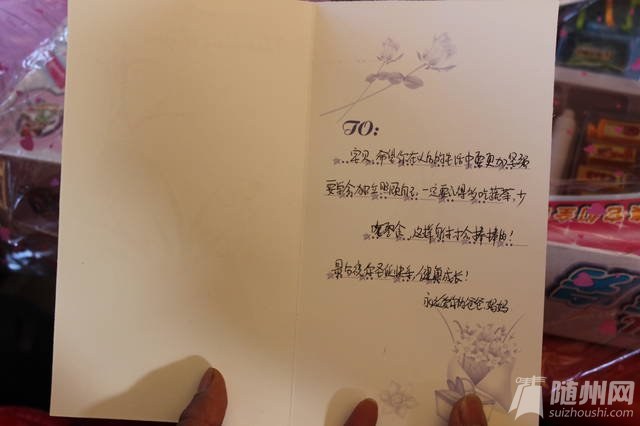 TO:
宝贝,希望你在以后的生活中要更加坚强
要学会独立照顾自己,一定要记得多吃蔬菜,少
喝雪碧,这样身体才会棒棒的!
最后祝你圣诞快乐/健康成长!
永远爱你的爸爸妈妈
随州网
suizhoushi.com